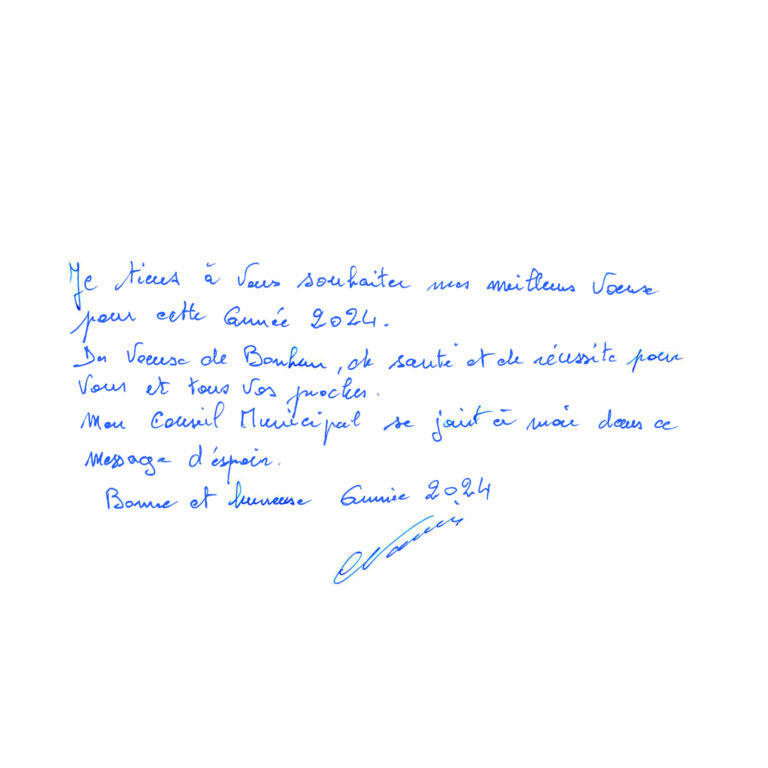 Je tiens à Vous souhaiter mes meilleurs Voeux
pour cette Année 2024.
Des Voeux de Bonheur, de santé et de réussite pour
Vous et tous Vos proches.
Mon Conseil Municipal se joint à moi dans ce
message d'espoir.
Bonne et heureuse Année 2024